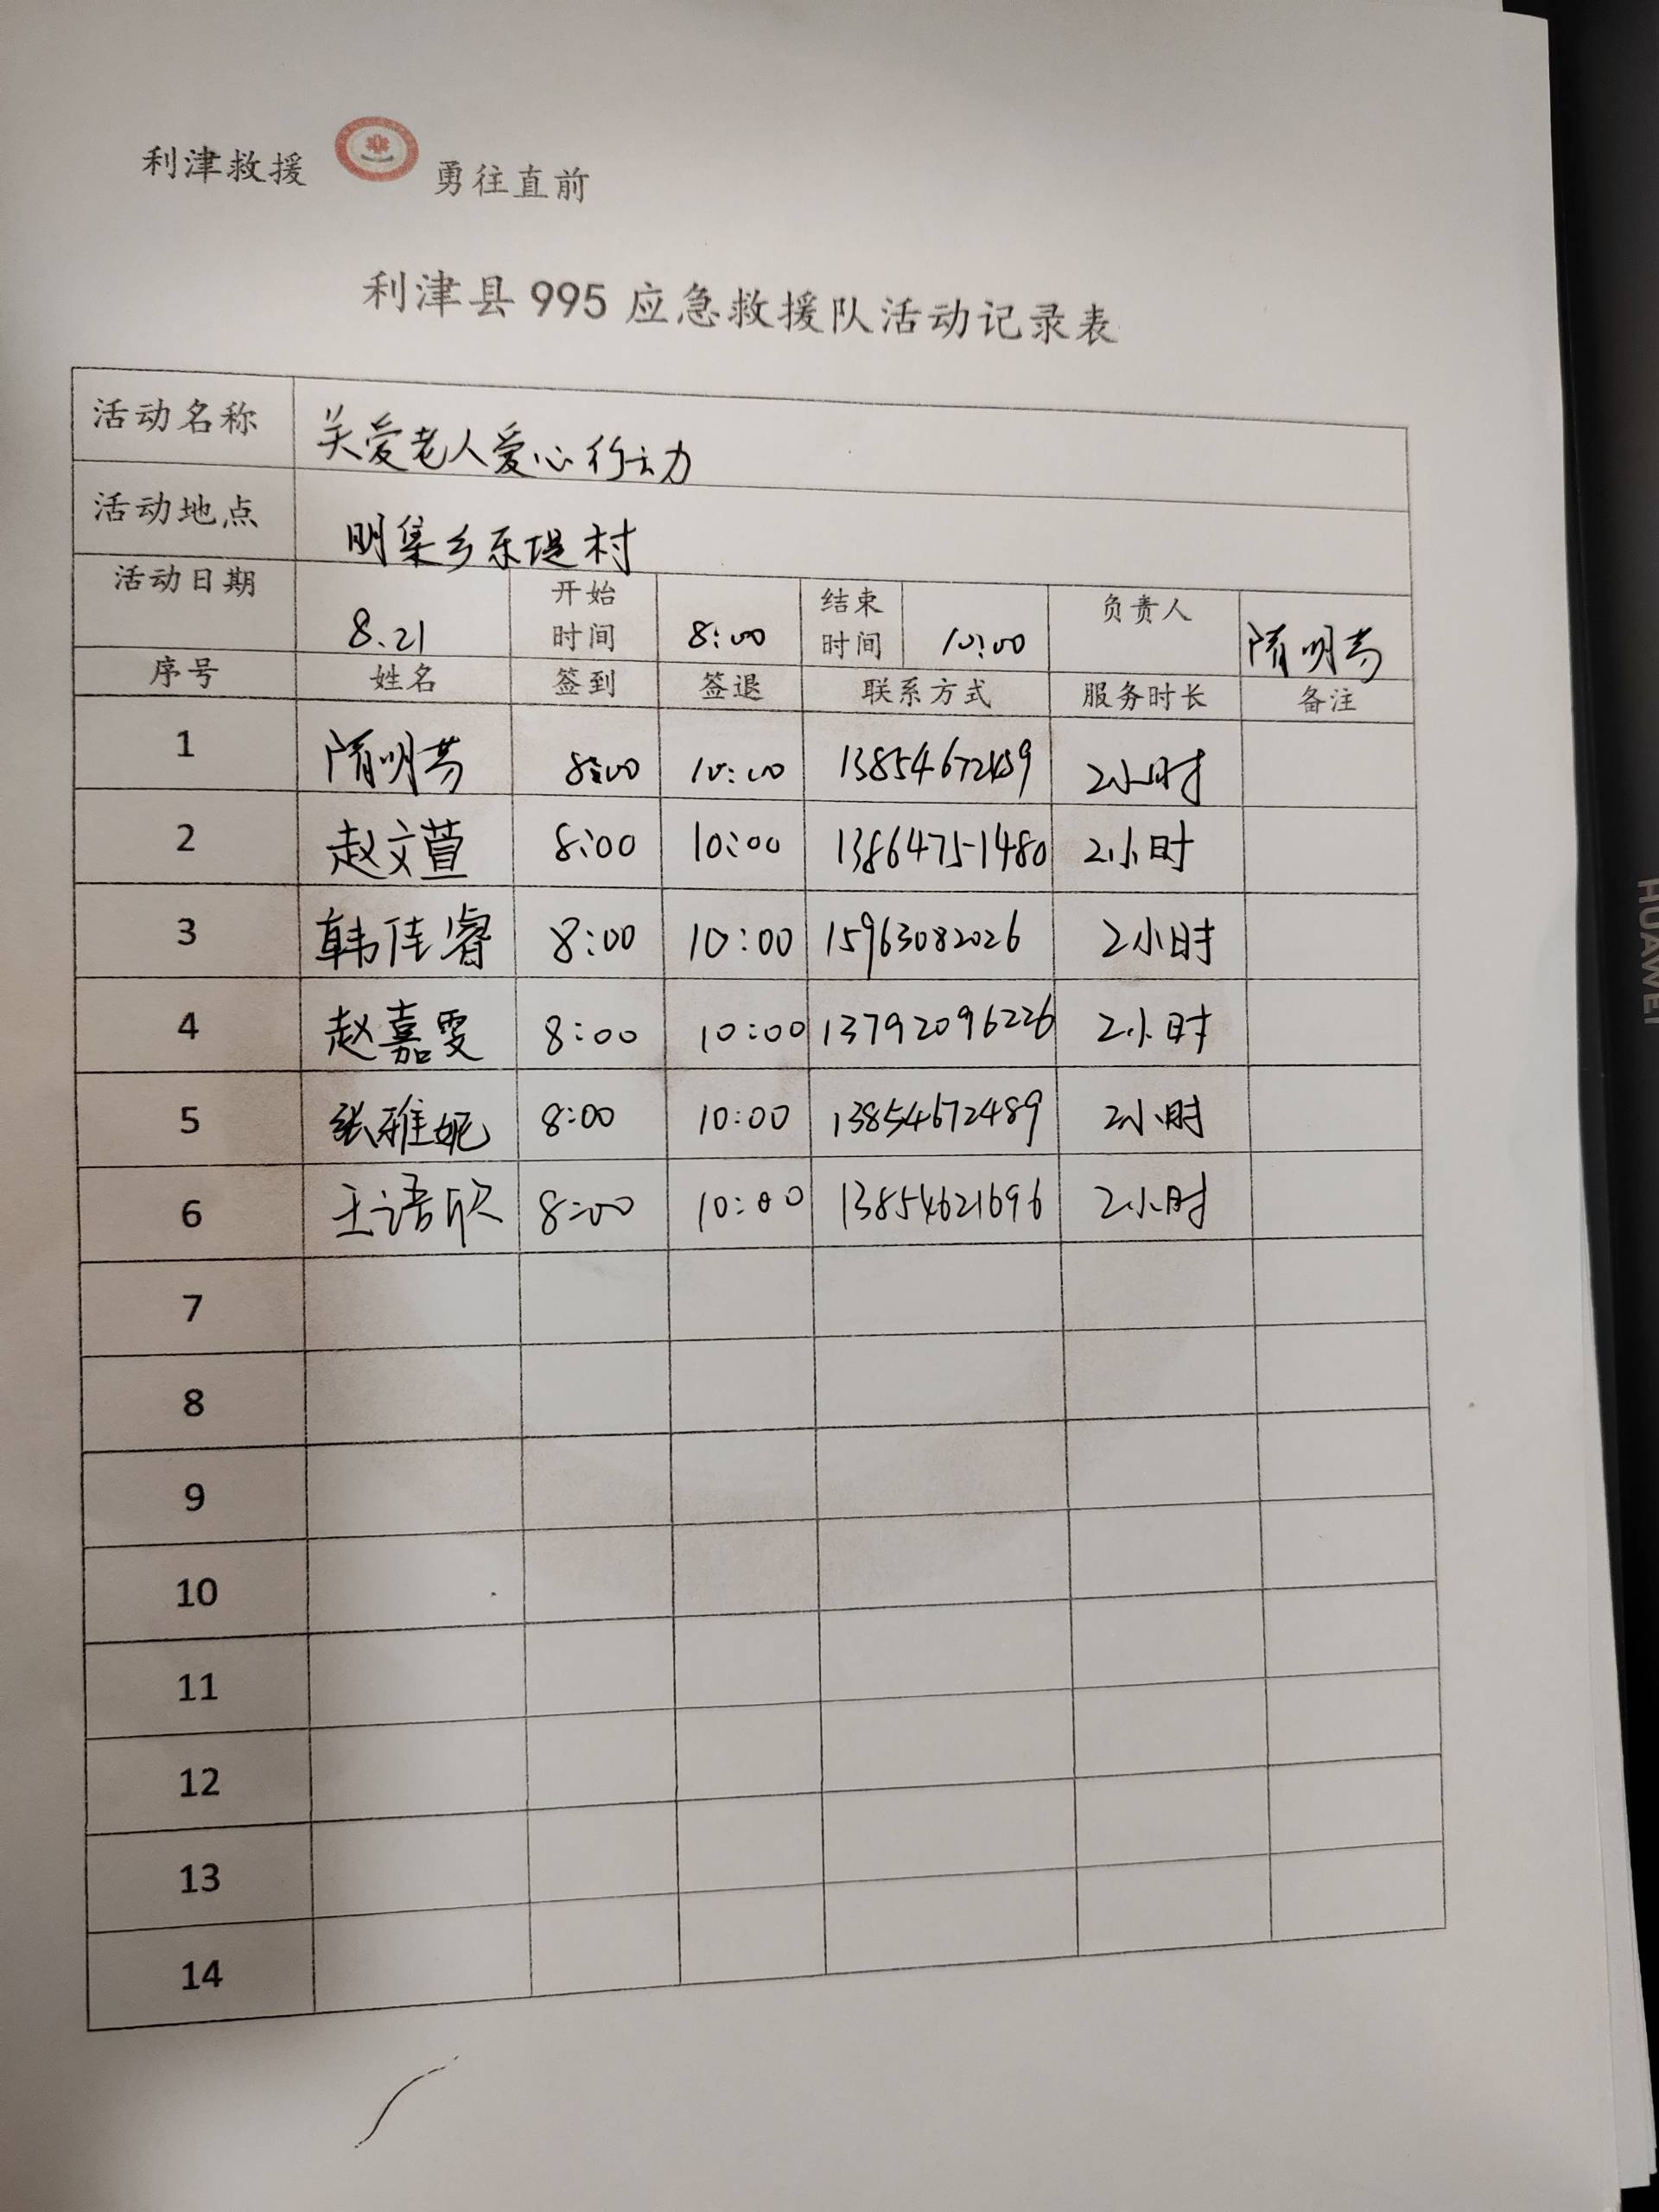 利津救援 勇往直前
利津县 995 应急救援队活动记录表
活动名称 关爱老人爱心行动
活动地点 明集乡东堤村
活动日期 8.21 开始时间 8:00 结束时间 10:00 负责人 隋明芳
序号 姓名 签到 签退 联系方式 服务时长 备注
1 隋明芳 8:00 10:00 13854672489 2小时
2 赵文萱 8:00 10:00 13864751480 2小时
3 韩佳睿 8:00 10:00 15963082026 2小时
4 赵嘉雯 8:00 10:00 13792096226 2小时
5 张雅妮 8:00 10:00 13854672489 2小时
6 王语欣 8:00 10:00 13854621696 2小时
7
8
9
10
11
12
13
14
HUAWEI